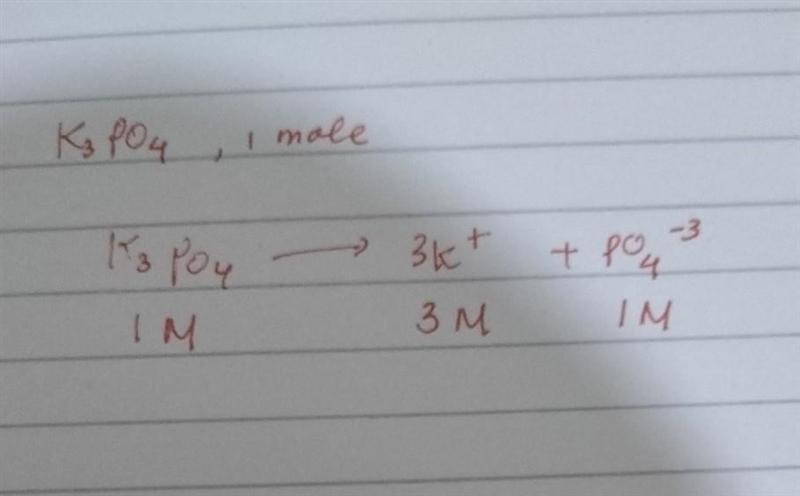 K₃PO₄ , 1 mole
K₃PO₄ ⟶ 3K⁺ + PO₄⁻³
1 M 3 M 1 M